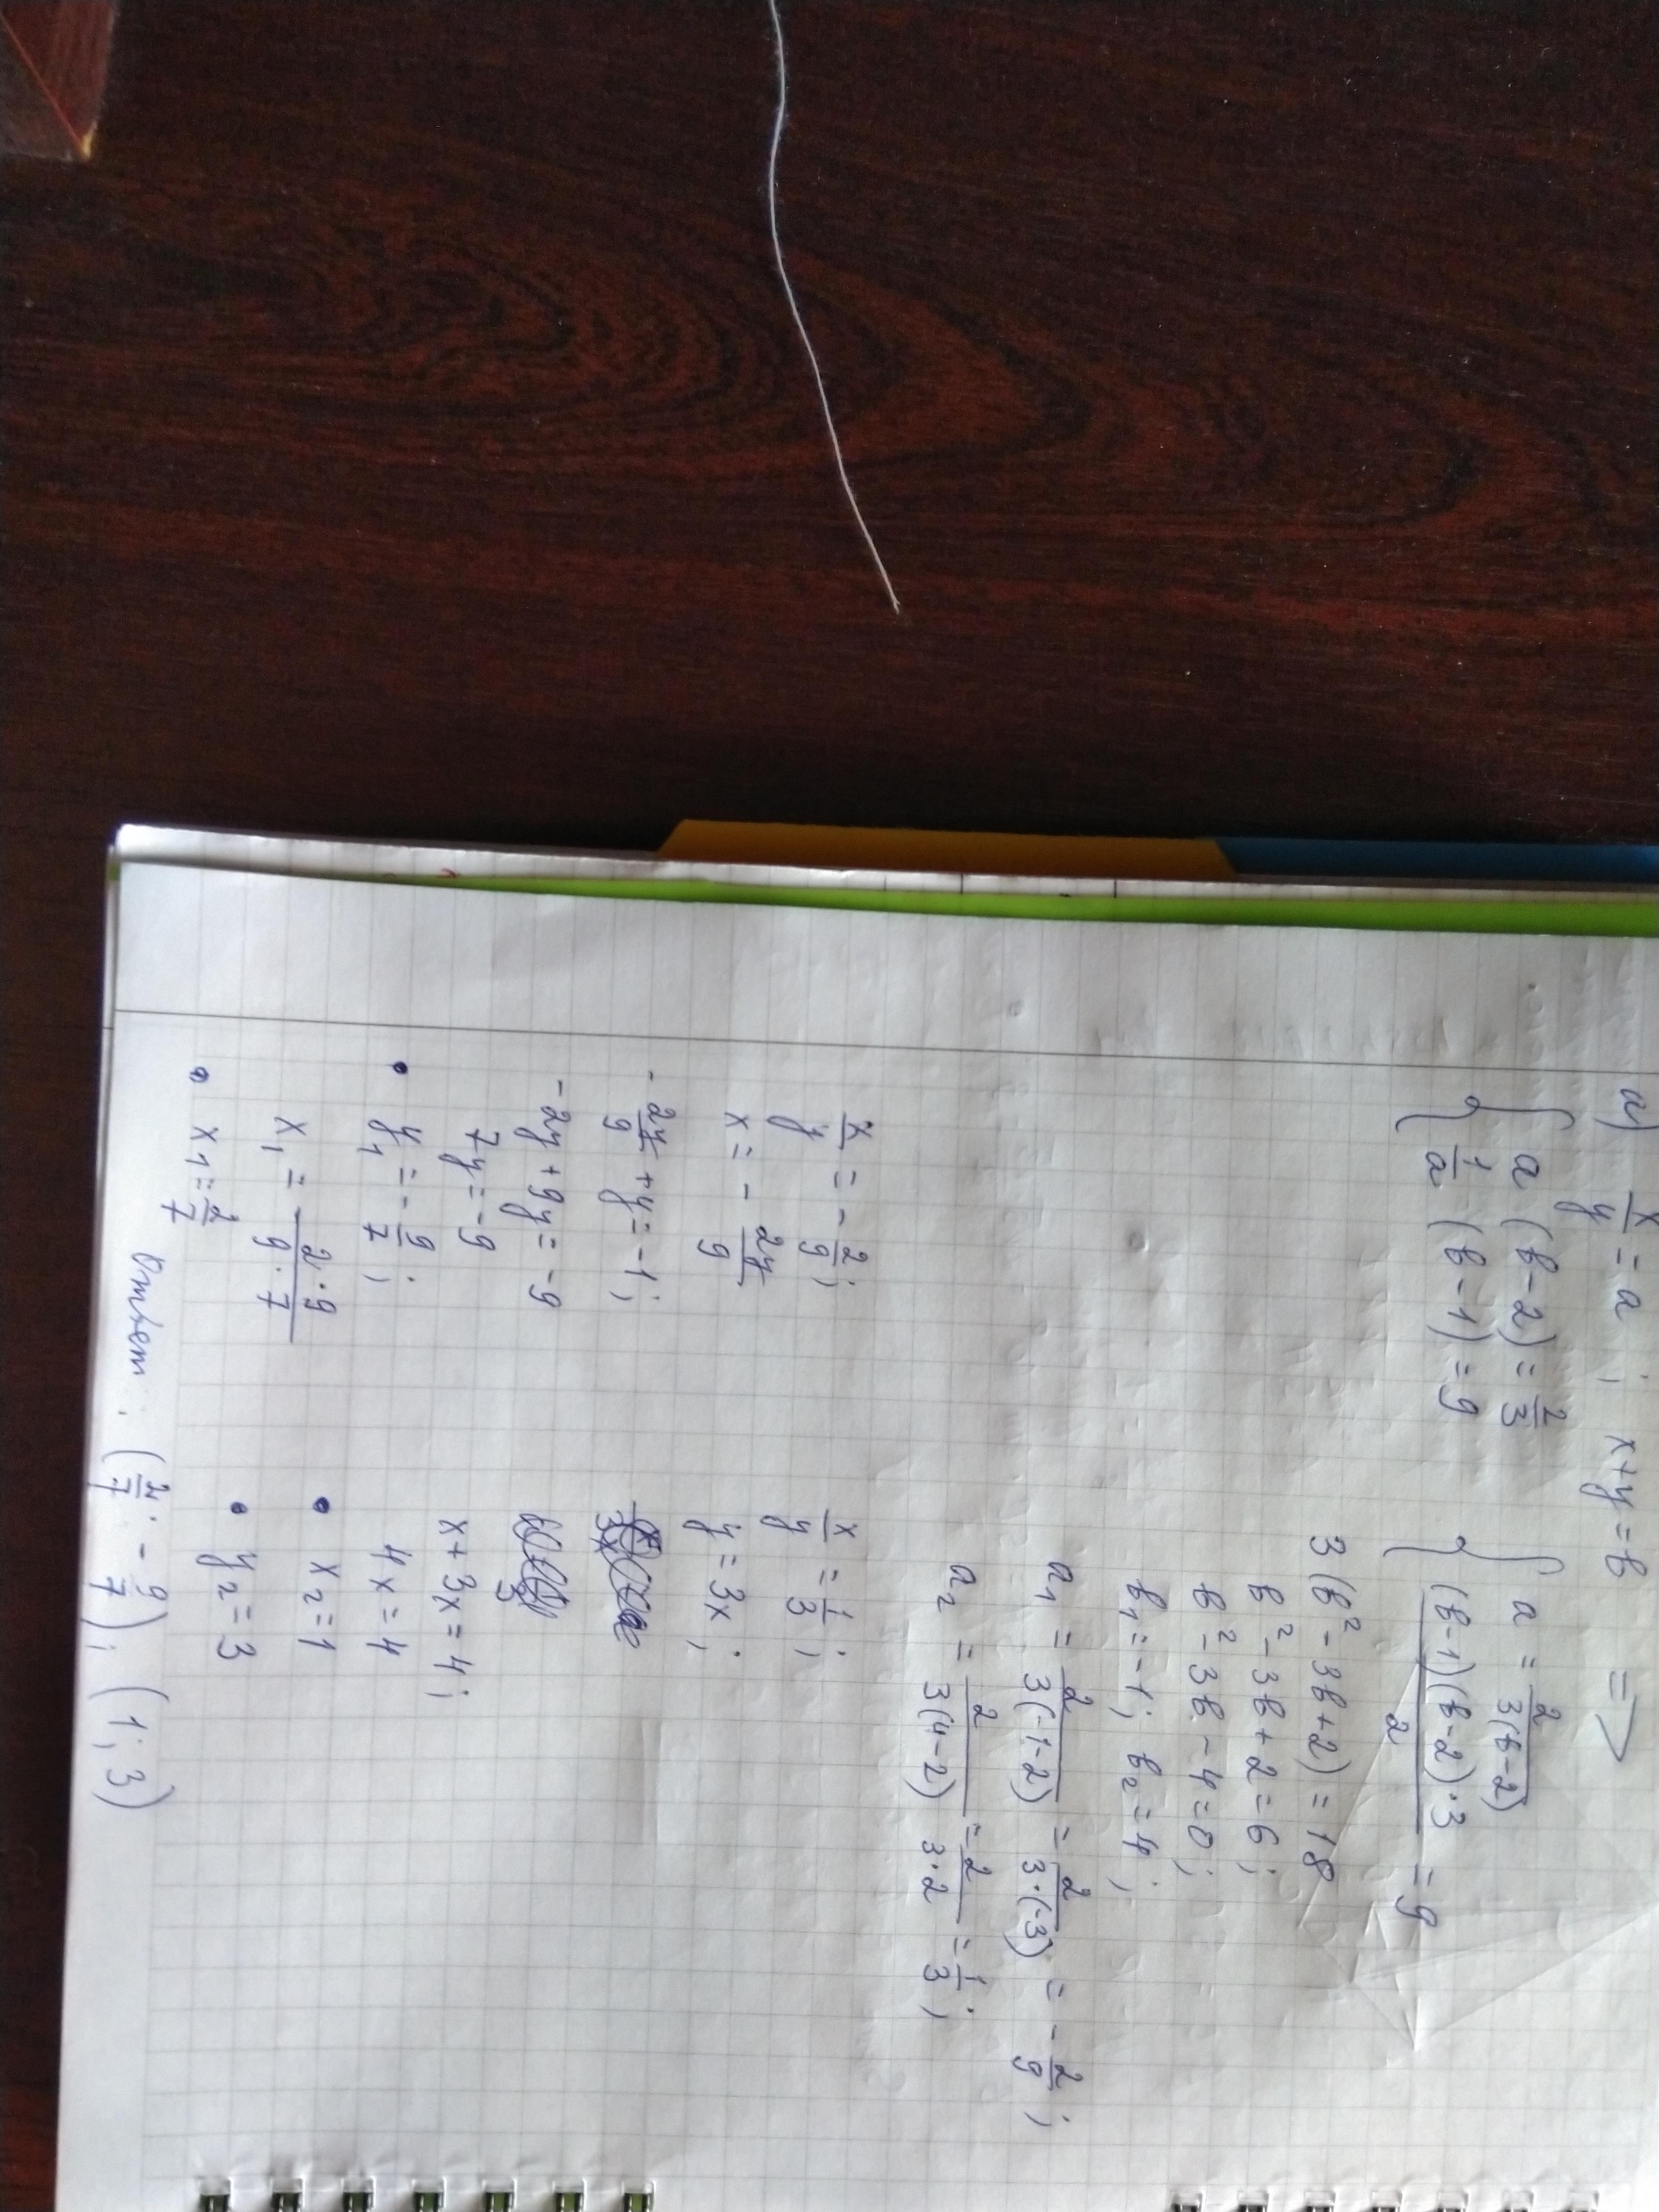 а) x/y = a ; x+y = в =>
{ a (в-2) = 2/3
{ 1/a (в-1) = 9
{ a = 2/3(в-2)
{ (в-1)(в-2)·3/2 = 9
3(в² - 3в+2) = 18
в² - 3в + 2 = 6;
в² - 3в - 4 = 0;
в₁ = -1; в₂ = 4;
a₁ = 2/3(-1-2) = 2/3·(-3) = - 2/9 ;
a₂ = 2/3(4-2) = 2/3·2 = 1/3 ;
x/y = - 2/9 ;
x = - 2y/9
- 2y/9 + y = -1;
-2y + 9y = -9
7y = -9
• y₁ = - 9/7 ;
x₁ = - 2·9/9·7
• x₁ = 2/7
x/y = 1/3 ;
y = 3x ;
x + 3x = 4;
4x = 4
• x₂ = 1
• y₂ = 3
Ответ: (2/7; - 9/7); (1; 3)